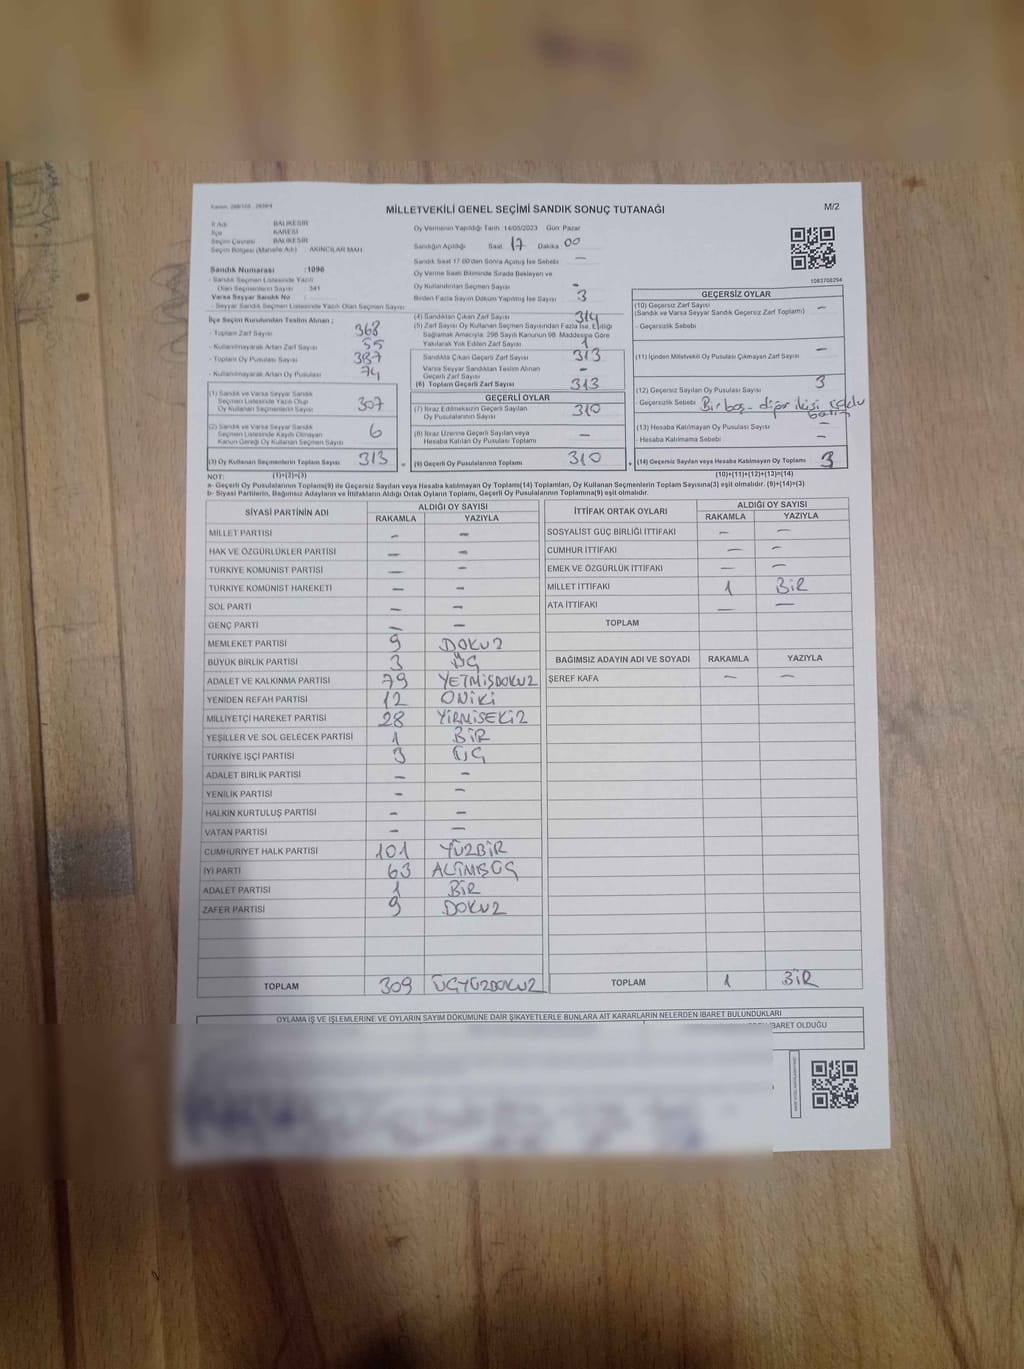 MİLLETVEKİLİ GENEL SEÇİMİ SANDIK SONUÇ TUTANAĞI
M/2
İl Adı BALIKESİR
İlçe KARESİ
Seçim Çevresi BALIKESİR
Seçim Bölgesi (Mahalle Adı) : AKINCILAR MAH
Sandık Numarası :1096
- Sandık Seçmen Listesinde Yazılı
Olan Seçmenlerin Sayısı : 341
Varsa Seyyar Sandık No :
- Seyyar Sandık Seçmen Listesinde Yazılı Olan Seçmen Sayısı
Oy Vermenin Yapıldığı Tarih 14/05/2023 Gün: Pazar
Sandığın Açıldığı Saat 17 Dakika 00
Sandık Saat 17:00'den Sonra Açılmış İse Sebebi —
Oy Verme Saati Bitiminde Sırada Bekleyen ve
Oy Kullandırılan Seçmen Sayısı -
Birden Fazla Sayım Döküm Yapılmış İse Sayısı 3
1083708294
İlçe Seçim Kurulundan Teslim Alınan ;
- Toplam Zarf Sayısı 368
- Kullanılmayarak Artan Zarf Sayısı 55
- Toplam Oy Pusulası Sayısı 387
- Kullanılmayarak Artan Oy Pusulası 74
(1) Sandık ve Varsa Seyyar Sandık
Seçmen Listesinde Yazılı Olup
Oy Kullanan Seçmenlerin Sayısı 307
(2) Sandık ve Varsa Seyyar Sandık
Seçmen Listesinde Kayıtlı Olmayan
Kanun Gereği Oy Kullanan Seçmen Sayısı 6
(3) Oy Kullanan Seçmenlerin Toplam Sayısı 313
(1)+(2)=(3)
(4) Sandıktan Çıkan Zarf Sayısı 314
(5) Zarf Sayısı Oy Kullanan Seçmen Sayısından Fazla İse, Eşitliği
Sağlamak Amacıyla 298 Sayılı Kanunun 98. Maddesine Göre
Yakılarak Yok Edilen Zarf Sayısı 1
Sandıkta Çıkan Geçerli Zarf Sayısı 313
Varsa Seyyar Sandıktan Teslim Alınan
Geçerli Zarf Sayısı -
(6) Toplam Geçerli Zarf Sayısı 313
GEÇERLİ OYLAR
(7) İtiraz Edilmeksizin Geçerli Sayılan
Oy Pusulalarının Sayısı 310
(8) İtiraz Üzerine Geçerli Sayılan veya
Hesaba Katılan Oy Pusulası Toplamı —
(9) Geçerli Oy Pusulalarının Toplamı 310
GEÇERSİZ OYLAR
(10) Geçersiz Zarf Sayısı
(Sandık ve Varsa Seyyar Sandık Geçersiz Zarf Toplamı) —
- Geçersizlik Sebebi
(11) İçinden Milletvekili Oy Pusulası Çıkmayan Zarf Sayısı —
(12) Geçersiz Sayılan Oy Pusulası Sayısı 3
- Geçersizlik Sebebi Bir boş - diğer ikisi
(13) Hesaba Katılmayan Oy Sayısı —
- Hesaba Katılmama Sebebi —
(14) Geçersiz Sayılan veya Hesaba Katılmayan Oy Toplamı 3
(10)+(11)+(12)+(13)=(14)
NOT:
a- Geçerli Oy Pusulalarının Toplamı(9) ile Geçersiz Sayılan veya Hesaba katılmayan Oy Toplamı(14) Toplamları, Oy Kullanan Seçmenlerin Toplam Sayısına(3) eşit olmalıdır. (9)+(14)=(3)
b- Siyasi Partilerin, Bağımsız Adayların ve İttifakların Aldığı Ortak Oyların Toplamı, Geçerli Oy Pusulalarının Toplamına(9) eşit olmalıdır.
SİYASİ PARTİNİN ADI ALDIĞI OY SAYISI
RAKAMLA YAZIYLA
MİLLET PARTİSİ - -
HAK VE ÖZGÜRLÜKLER PARTİSİ - -
TÜRKİYE KOMÜNİST PARTİSİ - -
TÜRKİYE KOMÜNİST HAREKETİ - -
SOL PARTİ - -
GENÇ PARTİ - -
MEMLEKET PARTİSİ 9 DOKUZ
BÜYÜK BİRLİK PARTİSİ 3 ÜÇ
ADALET VE KALKINMA PARTİSİ 79 YETMİŞDOKUZ
YENİDEN REFAH PARTİSİ 12 ONİKİ
MİLLİYETÇİ HAREKET PARTİSİ 28 YİRMİSEKİZ
YEŞİLLER VE SOL GELECEK PARTİSİ 1 BİR
TÜRKİYE İŞÇİ PARTİSİ 3 ÜÇ
ADALET BİRLİK PARTİSİ - -
YENİLİK PARTİSİ - -
HALKIN KURTULUŞ PARTİSİ - -
VATAN PARTİSİ - -
CUMHURİYET HALK PARTİSİ 101 YÜZBİR
İYİ PARTİ 63 ALTMIŞÜÇ
ADALET PARTİSİ 1 BİR
ZAFER PARTİSİ 9 DOKUZ
TOPLAM 309 ÜÇYÜZDOKUZ
İTTİFAK ORTAK OYLARI ALDIĞI OY SAYISI
RAKAMLA YAZIYLA
SOSYALİST GÜÇ BİRLİĞİ İTTİFAKI - -
CUMHUR İTTİFAKI - -
EMEK VE ÖZGÜRLÜK İTTİFAKI - -
MİLLET İTTİFAKI 1 BİR
ATA İTTİFAKI - -
TOPLAM
BAĞIMSIZ ADAYIN ADI VE SOYADI RAKAMLA YAZIYLA
ŞEREF KAFA - -
TOPLAM 1 BİR
OYLAMA İŞ VE İŞLEMLERİNE VE OYLARIN SAYIM DÖKÜMÜNE DAİR ŞİKAYETLERLE BUNLARA AİT KARARLARIN NELERDEN İBARET BULUNDUKLARI
İBARET OLDUĞU